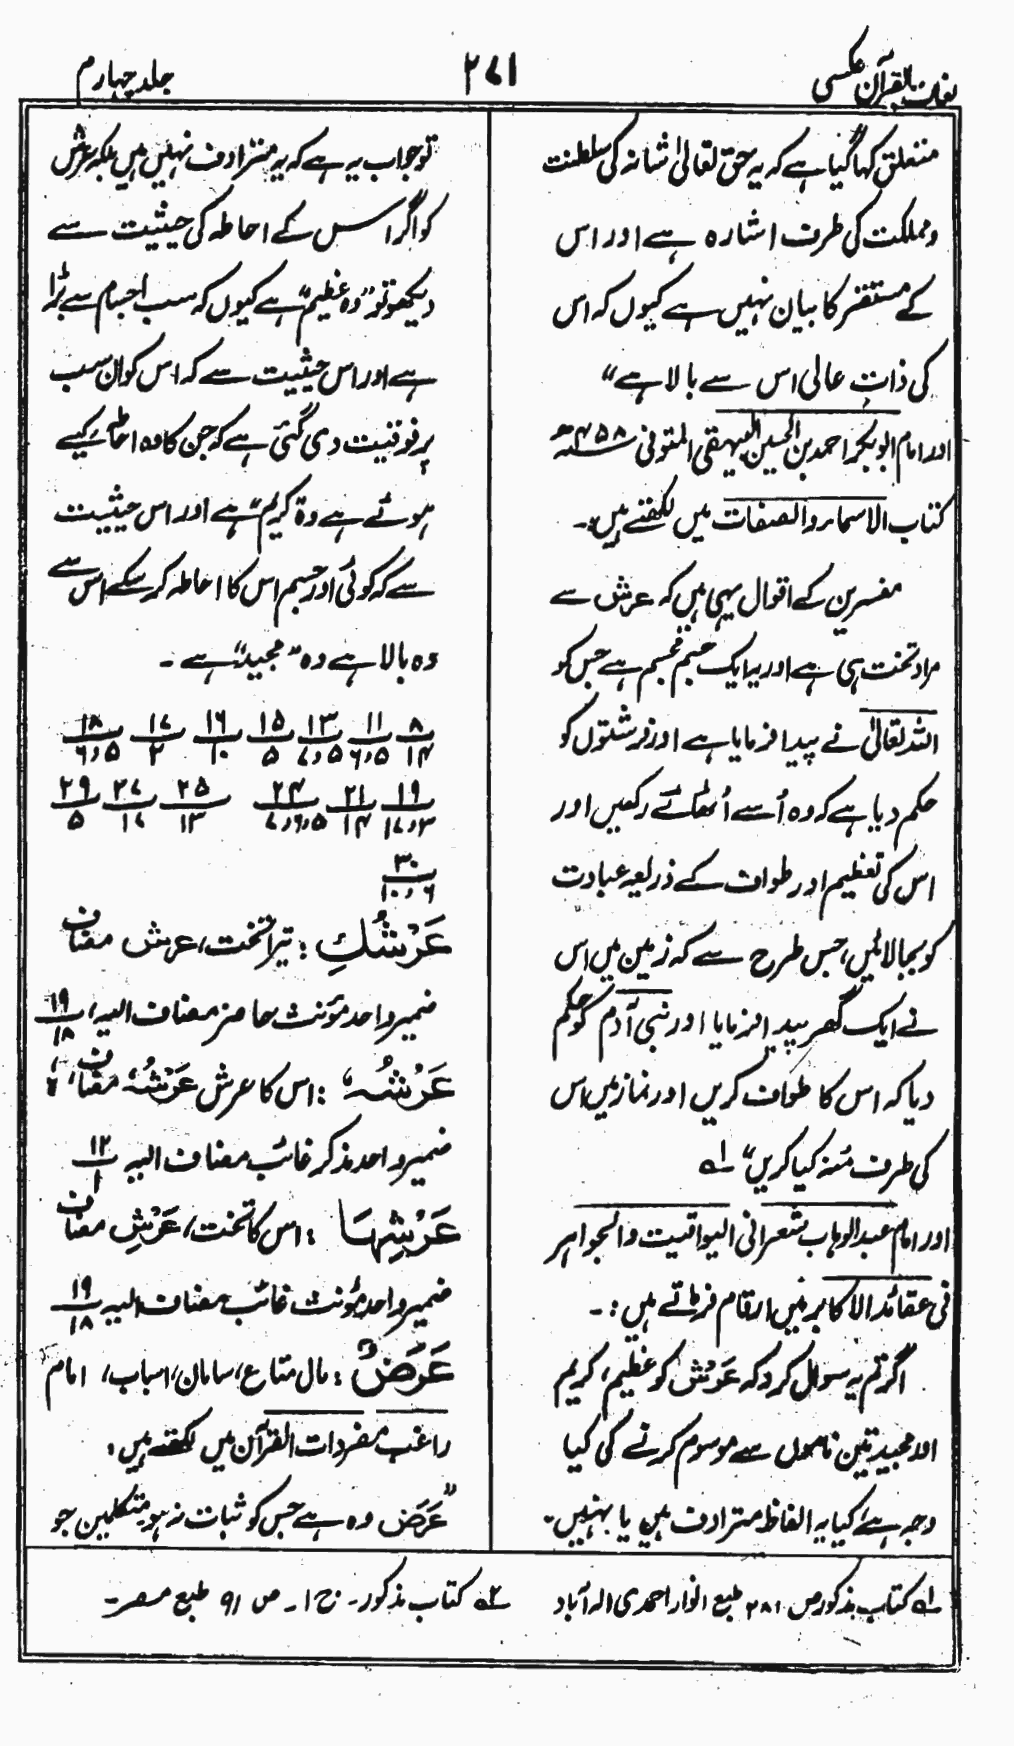 لغات القرآن عکسی
۲۷۱
جلد چہارم
متعلق کہا گیا ہے کہ یہ حق تعالیٰ شانہ کی سلطنت
ومملکت کی طرف اشارہ ہے اور اس
کے مستقر کا بیان نہیں ہے کیوں کہ اس
کی ذات عالی اس سے بالا ہے"
اور امام ابوبکر احمد بن الحسین البیہقی المتوفی ۴۵۸ھ
کتاب الاسماء والصفات میں لکھتے ہیں:۔
مفسرین کے اقوال یہی ہیں کہ عرش سے
مراد تخت ہی ہے اور یہ ایک جسم مجسم ہے جس کو
اللہ تعالیٰ نے پیدا فرمایا ہے اور فرشتوں کو
حکم دیا ہے کہ وہ اُسے اُٹھائے رکھیں اور
اس کی تعظیم اور طواف کے ذریعہ عبادت
کو بجا لائیں، جس طرح سے کہ زمین میں اس
نے ایک گھر پیدا فرمایا اور بنی آدم کو حکم
دیا کہ اس کا طواف کریں اور نماز میں اس
کی طرف منہ کیا کریں" ۱ہ
اور امام عبدالوہاب شعرانی الیواقیت والجواہر
فی عقائد الاکابر میں ارقام فرماتے ہیں:۔
اگر تم یہ سوال کرو کہ عَرْش کو عظیم، کریم
اور مجید تین ناموں سے موسوم کرنے کی کیا
وجہ ہے، کیا یہ الفاظ مترادف ہیں یا نہیں۔
تو جواب یہ ہے کہ یہ مترادف نہیں ہیں بلکہ عرش
کو اگر اس کے احاطہ کی حیثیت سے
دیکھو تو "وہ عظیم" ہے کیوں کہ سب اجسام سے بڑا
ہے اور اس حیثیت سے کہ اس کو ان سب
پر فوقیت دی گئی ہے کہ جن کا وہ احاطہ کیے
ہوئے ہے وہ "کریم" ہے اور اس حیثیت
سے کہ کوئی اور جسم اس کا احاطہ کر سکے اس سے
وہ بالا ہے وہ "مجید" ہے۔
۸/۱۴ ۱۱/۶،۵ ۱۳/۷،۵ ۱۵/۵ ۱۶/۱۰ ۱۷/۲ ۱۸/۶،۵
۱۹/۱۷،۳ ۲۱/۱۴ ۲۴/۷،۶،۵ ۲۵/۱۳ ۲۷/۱۷ ۲۹/۵
۳۰/۱۰،۶
عَرْشُكِ: تیرا تخت، عرش مضاف
ضمیر واحد مؤنث حاضر مضاف الیہ، ۱۹/۱۸
عَرْشُهٗ: اس کا عرش عَرْشُ مضاف، ہٗ
ضمیر واحد مذکر غائب مضاف الیہ ۱۲/۱
عَرْشِهَا: اس کا تخت، عَرْشِ مضاف
ضمیر واحد مؤنث غائب مضاف الیہ ۱۹/۱۸
عَرَضٌ: مال متاع، سامان، اسباب، امام
راغب مفردات القرآن میں لکھتے ہیں:
"عَرَض وہ ہے جس کو ثبات نہ ہو متکلمین جو
۱ہ کتاب مذکور ص ۲۸۱ طبع انوار احمدی الہ آباد
۲ہ کتاب مذکور۔ ج ۱۔ ص ۹۱ طبع مصر۔